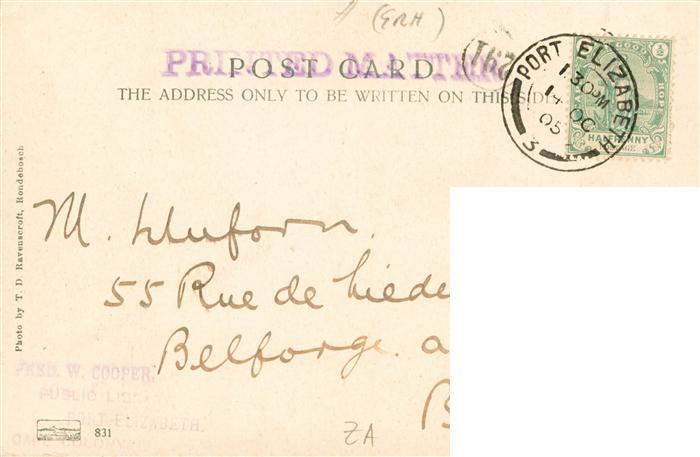 (GRH)
PRINTED MATTER
POST CARD
THE ADDRESS ONLY TO BE WRITTEN ON THIS SIDE
162
PORT ELIZABETH
1.30PM
14 OC
05
3
GOOD HOPE
½
HALFPENNY
Photo by T. D. Ravenscroft, Rondebosch
M. Duforn.
55 Rue de
Belforge. a
B
FRED. W. COOPER,
PUBLIC
PORT ELIZABETH.
CAPE COLONY
831
ZA